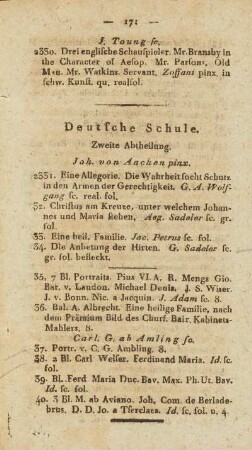 — 171 —
J. Young sc.
2330. Drei englische Schauspieler. Mr. Bransby in
the Character of Aesop. Mr. Parsons, Old
Man. Mr. Watkins. Servant. Zoffani pinx. in
schw. Kunst. qu. realfol.
Deutsche Schule.
Zweite Abtheilung.
Joh. von Aachen pinx.
2331. Eine Allegorie. Die Wahrheit socht Schutz
in den Armen der Gerechtigkeit. G. A. Wolf-
gang sc. real. fol.
32. Christus am Kreuze, unter welchem Johannes
und Maria stehen, Aeg. Sadeler sc. gr.
fol.
33. Eine heil. Familie. Jac. Petrus sc. fol.
34. Die Anbetung der Hirten. G. Sadeler sc.
gr. fol. befleckt.
35. 7 Bl. Portraits. Pius VI. A. R. Mengs Gio.
Bat. v. Laudon. Michael Denis. J. S. Wiser.
J. v. Bonn. Nic. a Jacquin. J. Adam sc. 8.
36. Bal. A. Albrecht. Eine heilige Familie, nach
dem Prämium Bild des Churf. Bair. Kabinets-
Mahlers. 8.
Carl. G. ab Amling sc.
37. Portr. v. C. G. Ambling. 8.
38. 2 Bl. Carl Welser. Ferdinand Maria. Id. sc.
fol.
39. Bl. Ferd Maria Duc. Bav. Max. Ph. Ut. Bav.
Id. sc. fol.
40. 3 Bl. M. ab Aviano. Joh, Com. de Berlade-
brus, D. D. Jo. a Tserclaes. Id. sc. fol. u. 4.